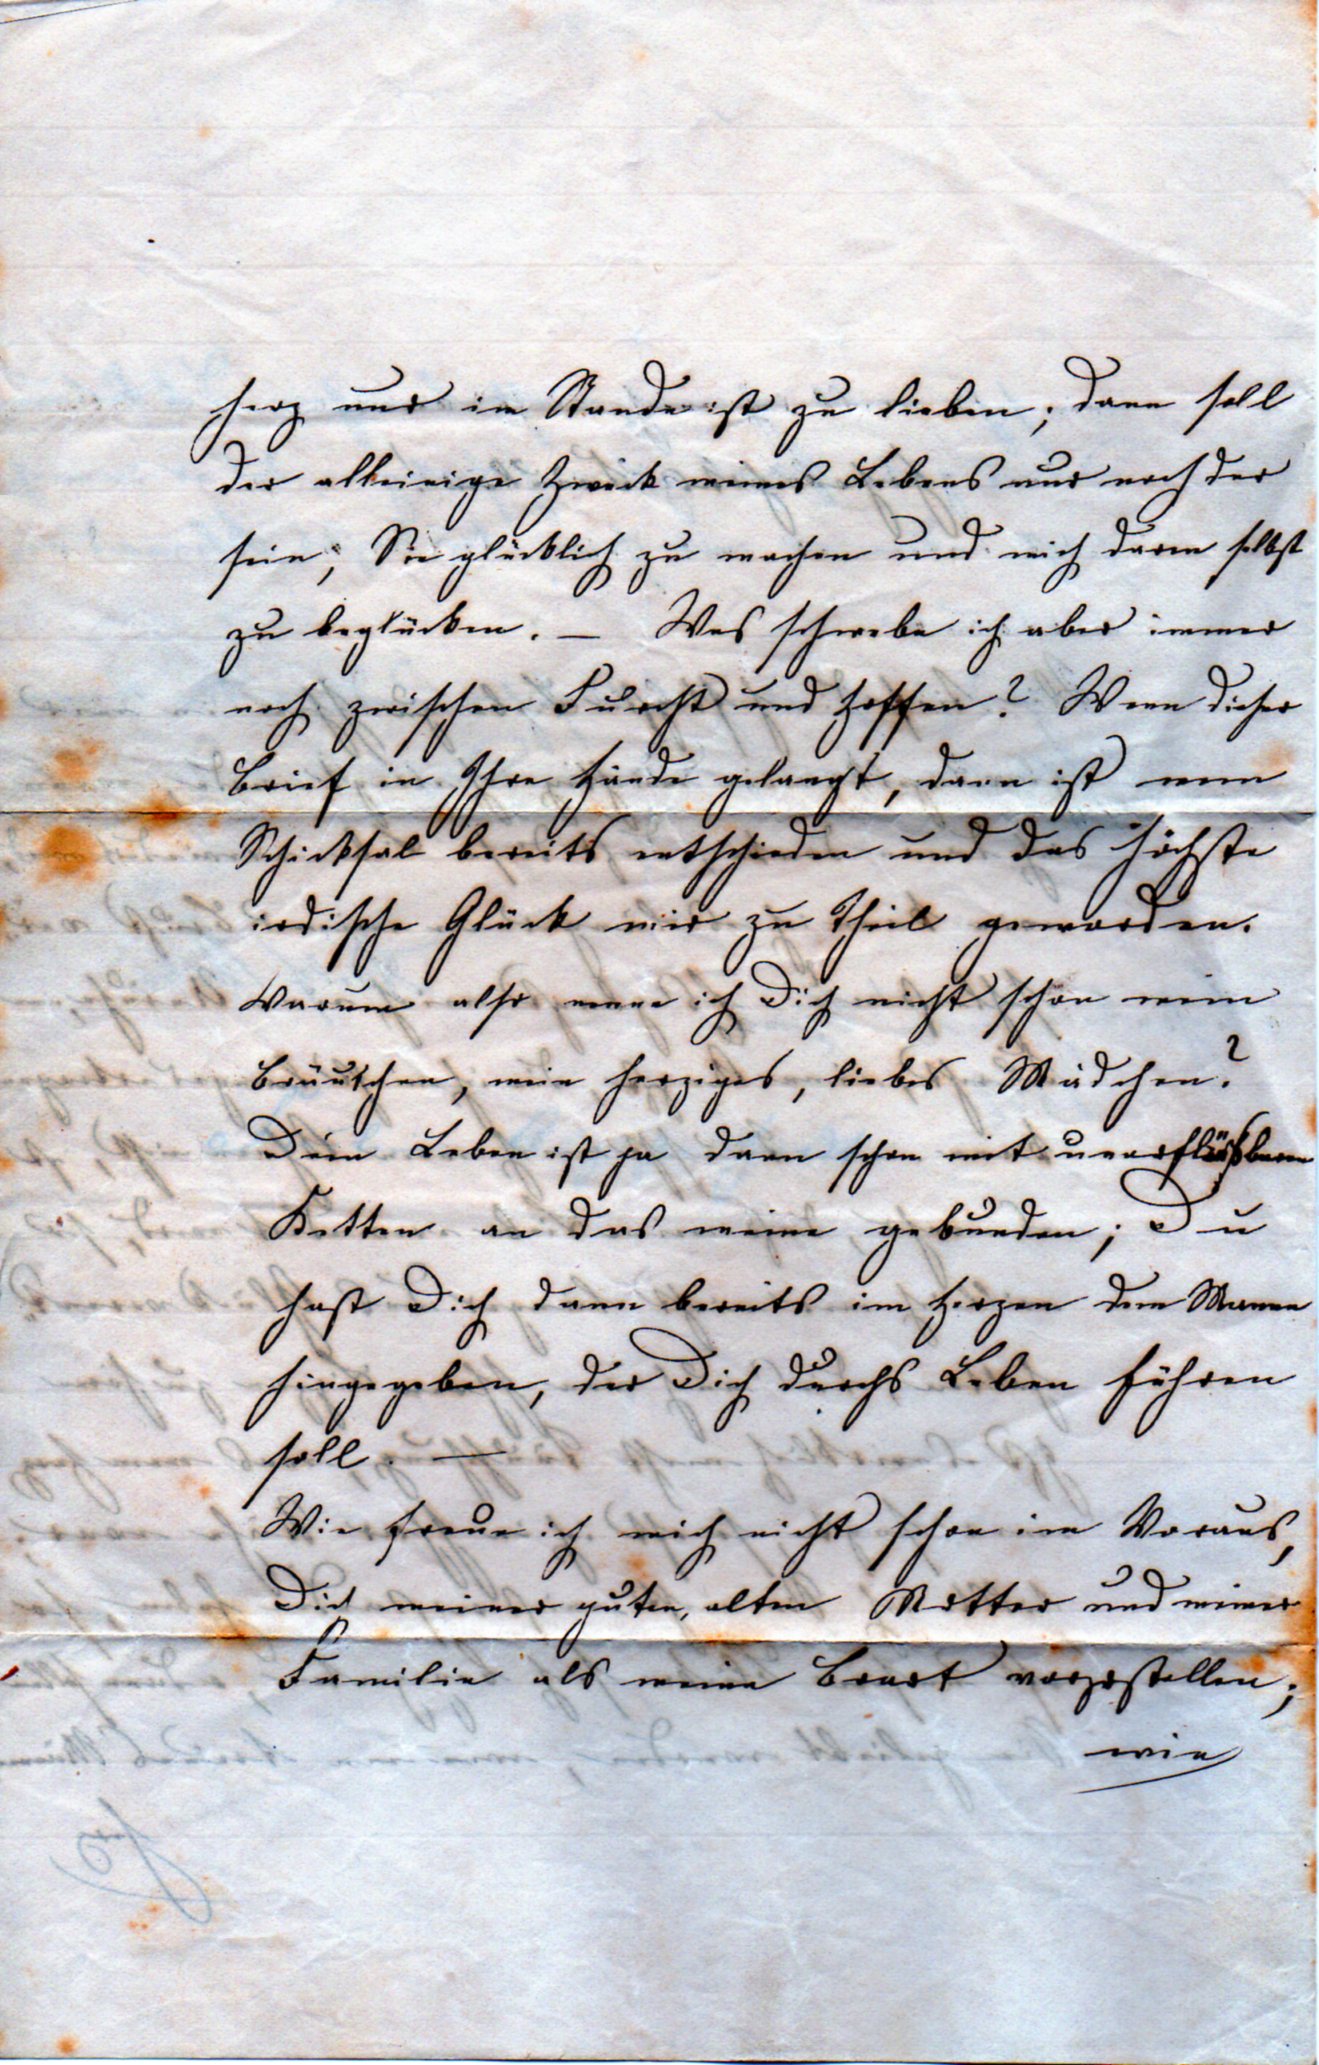 Herz nur im Stande ist zu lieben; dann soll
der alleinige Zweck meines Lebens nur noch der
sein, Sie glücklich zu machen und mich darin selbst
zu beglücken. — Was schwebe ich aber immer
noch zwischen Furcht und Hoffen? Wenn dieser
Brief in Ihre Hände gelangt, dann ist mein
Schicksal bereits entschieden und das höchste
irdische Glück mir zu Theil geworden.
Warum also nenne ich Dich nicht schon mein
Bräutchen, mein herziges, liebes Mädchen?
Dein Leben ist ja dann schon mit unauflösbaren
Ketten an das meine gebunden; Du
hast Dich dann bereits im Herzen dem Manne
hingegeben, der Dich durchs Leben führen
soll. —
Wie freue ich mich nicht schon im Voraus,
Dich meiner guten, alten Mutter und meiner
Familie als meine Braut vorzustellen;
wie